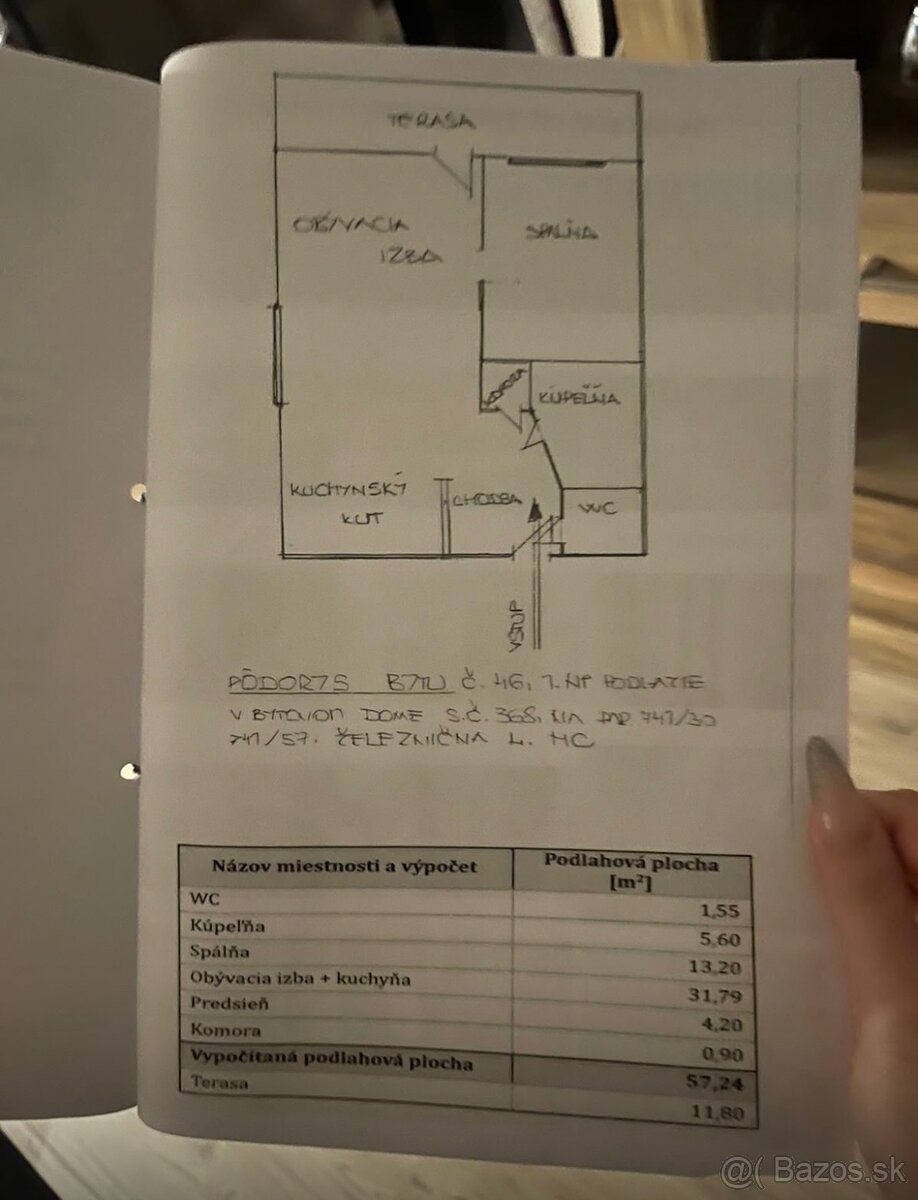 TERASA
OBÝVACIA
IZBA
SPÁLŇA
KOMORA
KÚPEĽŇA
KUCHYNSKÝ
KÚT
CHODBA
WC
VSTUP
PÔDORYS BYTU Č. 46, 1. NP PODLAŽIE
V BYTOVOM DOME S.Č. 368, NA PAR. 741/30
741/57. ŽELEZNIČNA
Názov miestnosti a výpočet
Podlahová plocha
[m²]
WC 1,55
Kúpeľňa 5,60
Spálňa 13,20
Obývacia izba + kuchyňa 31,79
Predsieň 4,20
Komora 0,90
Vypočítaná podlahová plocha 57,24
Terasa 11,80
@( Bazos.sk